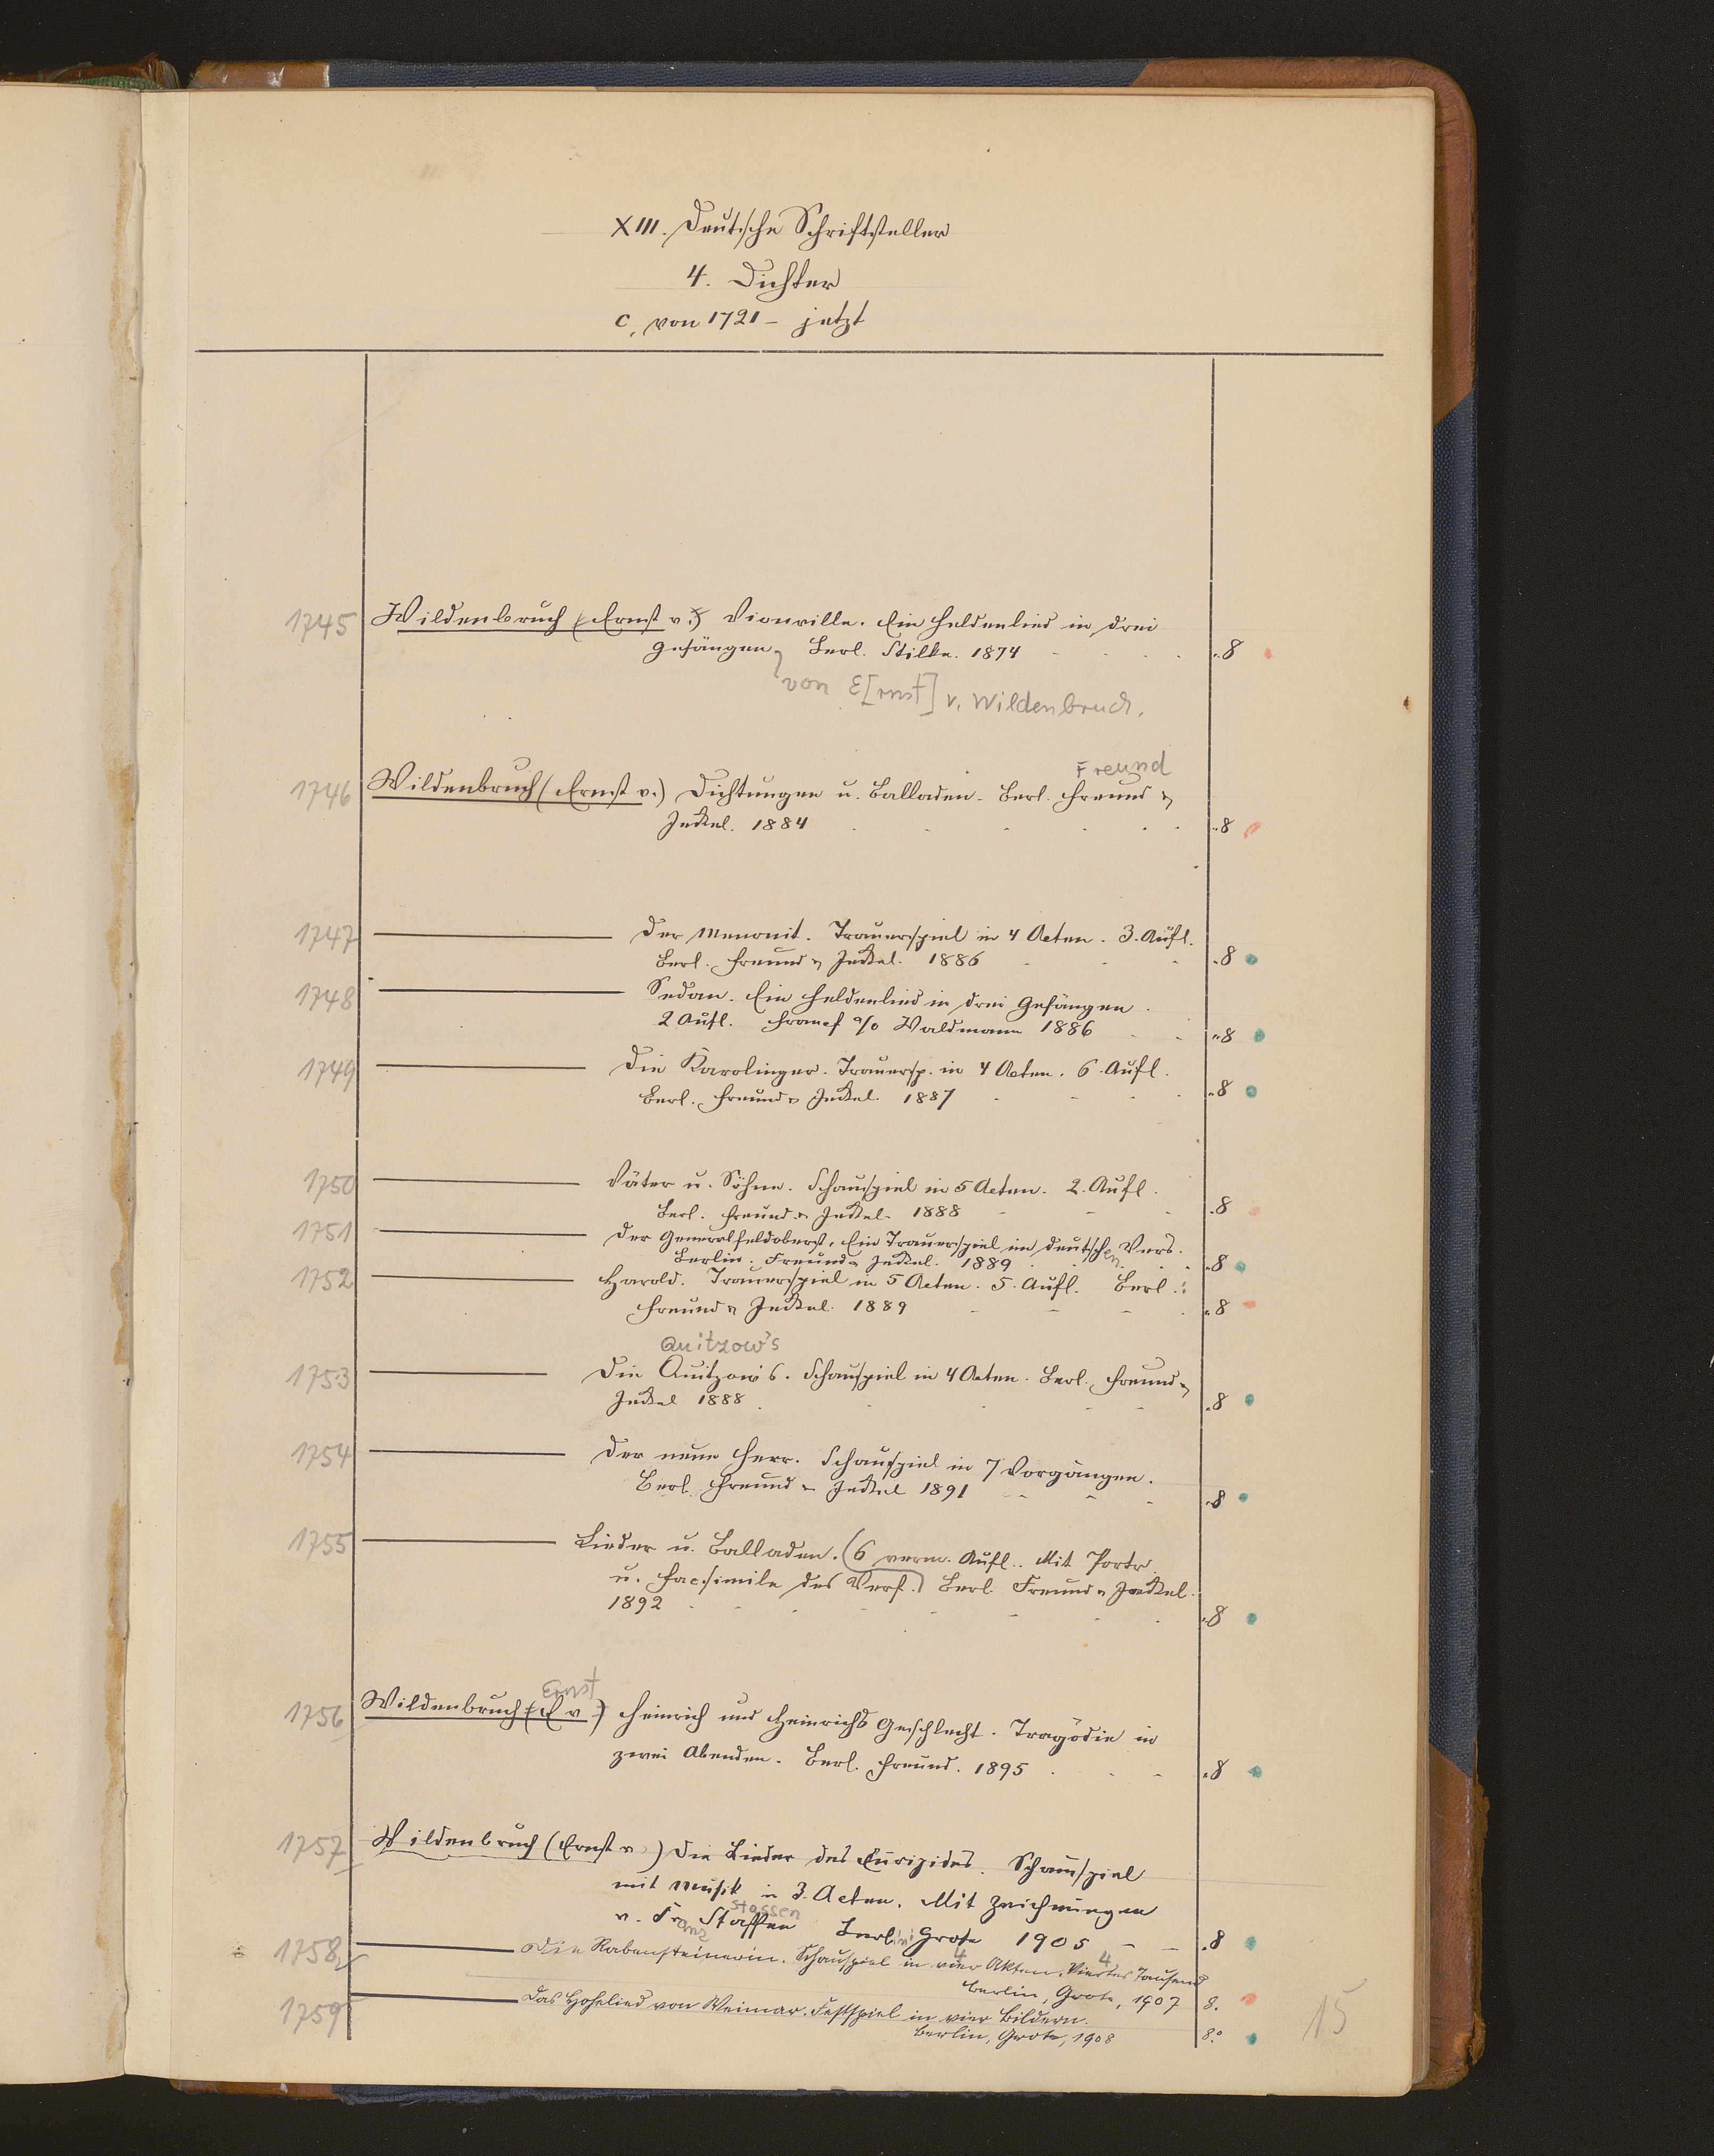 XIII. Deutsche Schriftsteller
4. Dichter
c. von 1721 – jetzt
1745 Wildenbruch (Ernst v.) Vionville. Ein Heldenlied in drei
Gesängen, Berl. Stilke. 1874 8
von E[rnst] v. Wildenbruch.
Freund
1746 Wildenbruch (Ernst v.) Dichtungen u. Balladen. Berl. Freund &
Jeckel. 1884 8
1747 ——— Der Menonit. Trauerspiel in 4 Acten. 3. Aufl.
Berl. Freund & Jeckel. 1886 8
1748 ——— Sedan. Ein Heldenlied in drei Gesängen.
2 Aufl. Francf a/o Waldmann 1886 8
1749 ——— Die Karolinger. Trauersp. in 4 Acten. 6. Aufl.
Berl. Freund & Jeckel. 1887 8
1750 ——— Väter u. Söhne. Schauspiel in 5 Acten. 2. Aufl.
Berl. Freund & Jeckel. 1888 8
1751 ——— Der Generalfeldoberst. Ein Trauerspiel im deutschen Vers.
Berlin. Freund & Jeckel. 1889 8
1752 ——— Harold. Trauerspiel in 5 Acten. 5. Aufl. Berl.
Freund & Jeckel. 1889 8
Quitzow's
1753 ——— Die Quitzow's. Schauspiel in 4 Acten. Berl. Freund &
Jeckel 1888 8
1754 ——— Der neue Herr. Schauspiel in 7 Vorgängen.
Berl. Freund & Jeckel 1891 8
1755 ——— Lieder u. Balladen. (6 verm. Aufl.. Mit Portr.
u. Facsimile des Verf.) Berl. Freund & Jeckel.
1892 8
Ernst
1756 Wildenbruch (E v.) Heinrich und Heinrichs Geschlecht. Tragödie in
zwei Abenden. Berl. Freund. 1895 8
1757 Wildenbruch (Ernst v) Die Lieder des Euripides. Schauspiel
mit Musik in 3. Acten. Mit Zeichnungen
Stassen
v. Franz Stassen Berlin Grote 1905 8
4 4
1758 ——— Die Rabensteinerin. Schauspiel in vier Akten. Viertes Tausend
Berlin, Grote, 1907 8.
1759 ——— Das Hohelied von Weimar. Festspiel in vier Bildern.
Berlin, Grote, 1908 8°
15